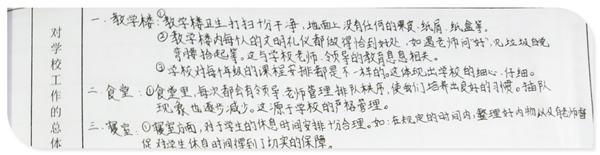 对学校工作的总体
一．教学楼：①教学楼卫生打扫十分干净，地面上没有任何的果皮、纸屑、纸盒等。
②教学楼内每个人的文明礼仪都做得恰到好处，如遇老师问"好"，见垃圾自觉
弯腰捡起等。这与学校老师、领导的教育息息相关。
③学校对每个年级的课程安排都是不一样的。这体现出学校的细心、仔细。
二．食堂：①食堂里，每次都会有领导、老师管理排队秩序，使我们培养出良好的习惯。插队
现象也逐步减少。这源于学校的严格管理。
三．寝室：①寝室方面，对于学生的休息时间安排十分合理。如：在规定的时间内，整理好内物以及有老师督
促对学生休息时间得到了切实的保障。